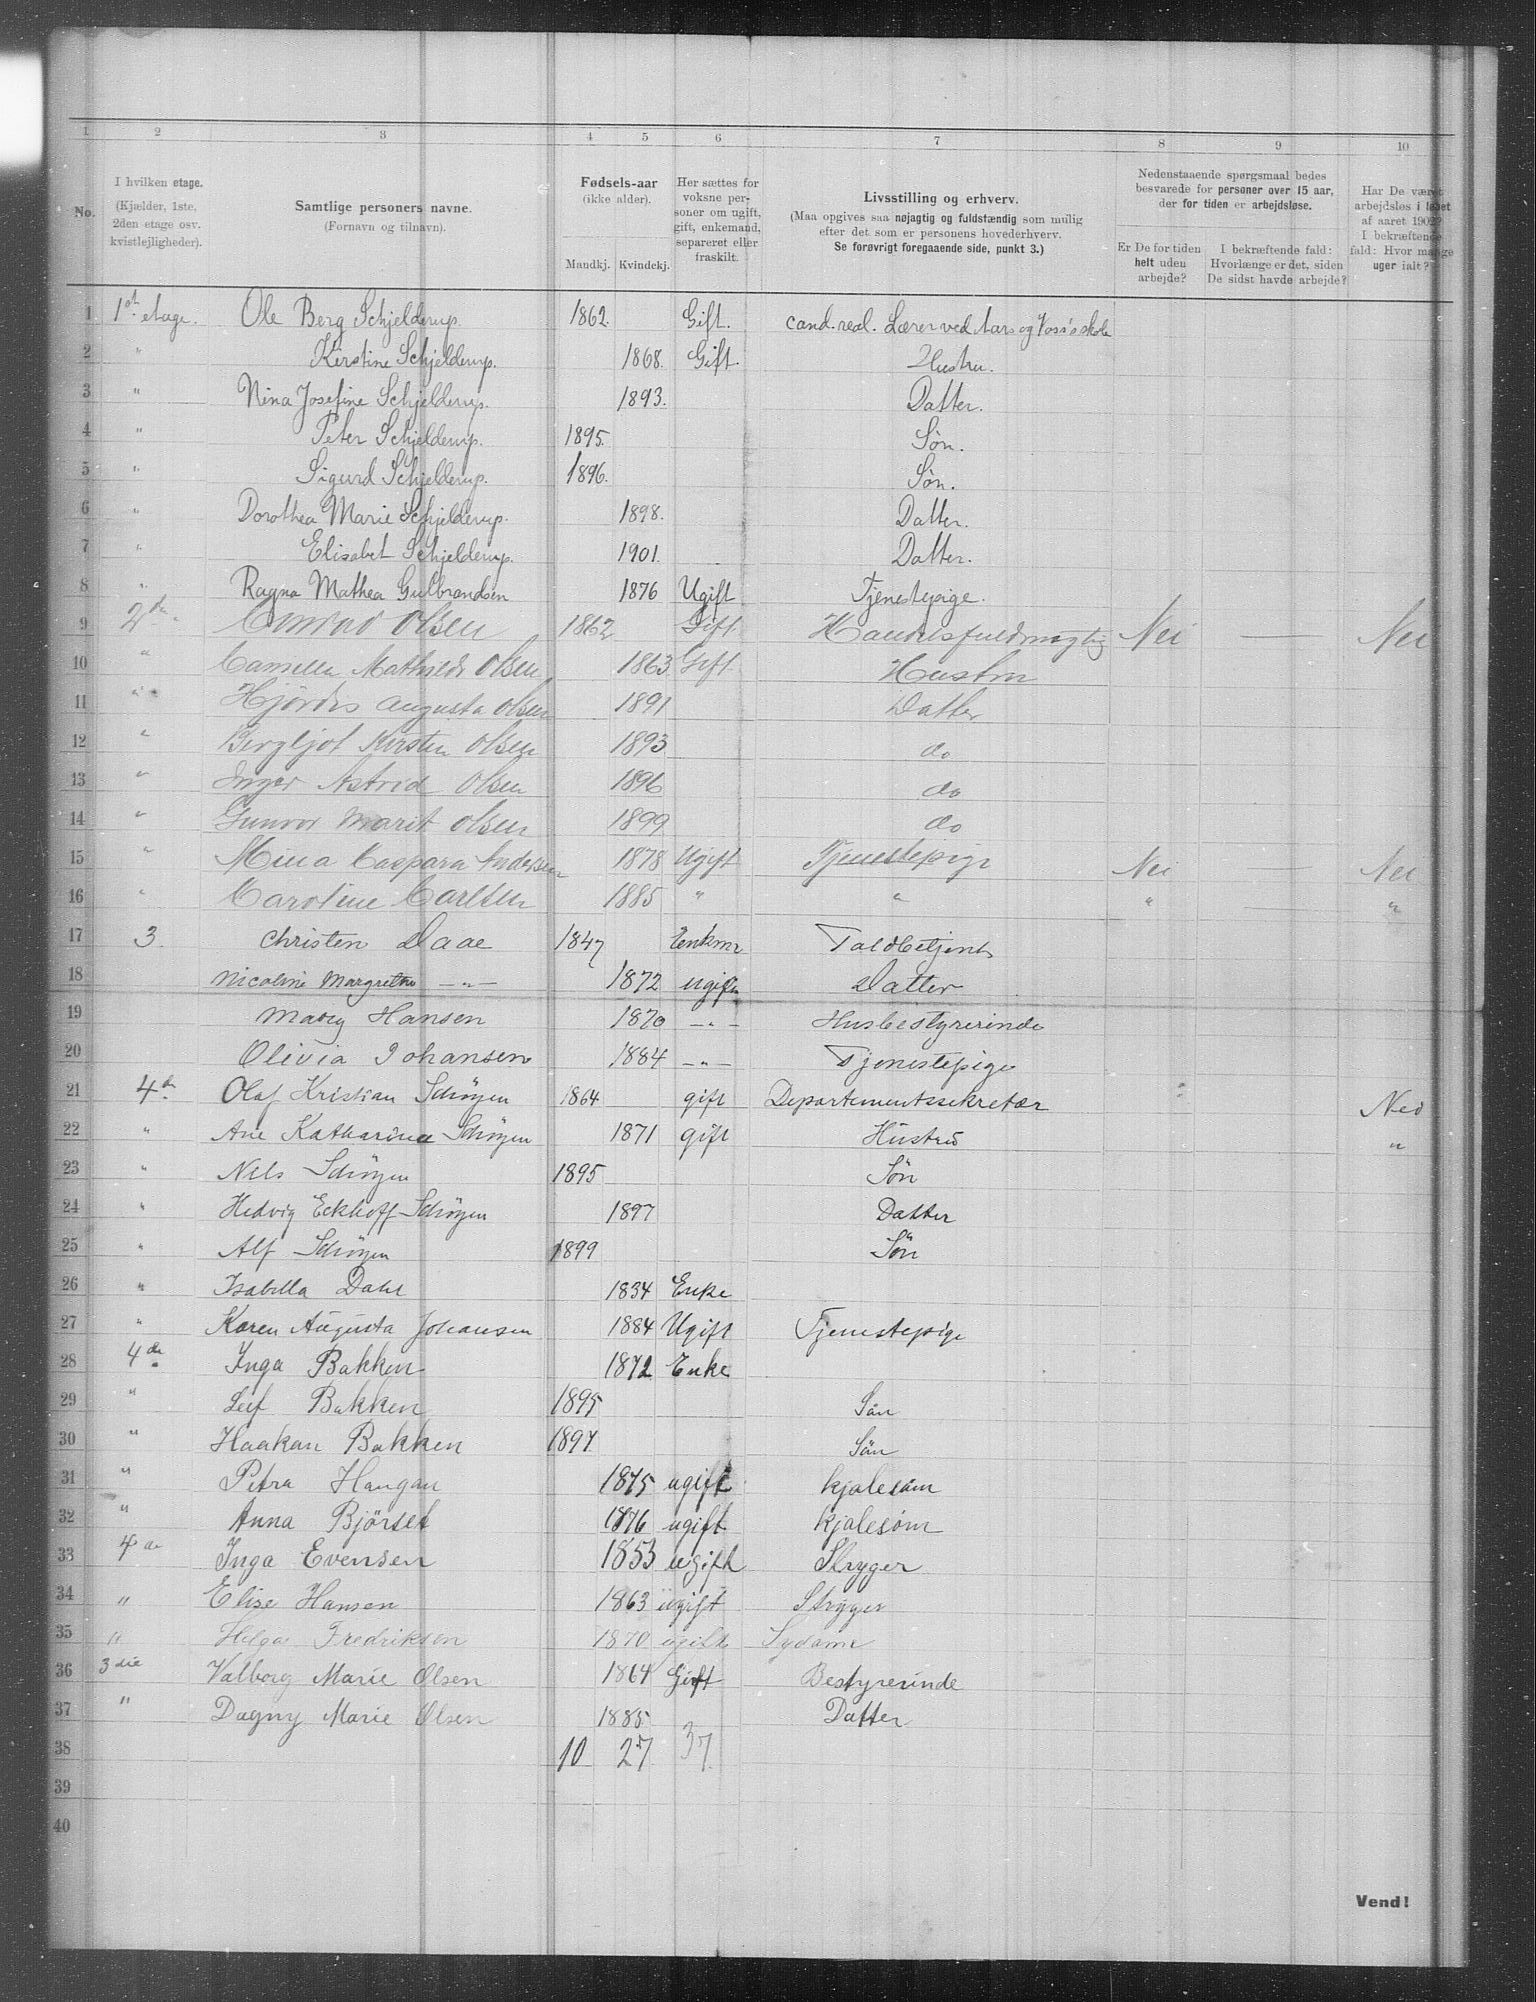 1 2 3 4 5 6 7 8 9 10
No. I hvilken etage. (Kjælder, 1ste, 2den etage osv. kvistlejligheder). Samtlige personers navne. (Fornavn og tilnavn). Fødsels-aar (ikke alder). Mandkj. Kvindekj. Her sættes for voksne personer om ugift, gift, enkemand, separeret eller fraskilt. Livsstilling og erhverv. (Maa opgives saa nøjagtig og fuldstændig som mulig efter det som er personens hovederhverv. Se forøvrigt foregaaende side, punkt 3.) Nedenstaaende spørgsmaal bedes besvarede for personer over 15 aar, der for tiden er arbejdsløse. Er De for tiden helt uden arbejde? I bekræftende fald: Hvorlænge er det, siden De sidst havde arbejde? Har De været arbejdsløs i løbet af aaret 1902? I bekræftende fald: Hvor mange uger ialt?
1 1st etage. Ole Berg Schjelderup. 1862. Gift. cand. real. Lærer ved Aars og Voss's skole
2 " Kirstine Schjelderup. 1868. Gift. Hustru.
3 " Nina Josefine Schjelderup. 1893. Datter.
4 " Peter Schjelderup. 1895. Søn.
5 " Sigurd Schjelderup. 1896. Søn.
6 " Dorothea Marie Schjelderup. 1898. Datter.
7 " Elisabet Schjelderup. 1901. Datter.
8 " Ragna Mathea Gulbrandsen 1876 Ugift Tjenestepige.
9 2de Conrad Olsen 1862 Gift Handelsfuldmægtig Nei — Nei
10 " Camilla Mathilde Olsen 1863 Gift Hustru
11 " Hjørdis Augusta Olsen 1891 Datter
12 " Bergljot Kirsten Olsen 1893 do
13 " Inger Astrid Olsen 1896 do
14 " Gunvor Marit Olsen 1899 do
15 " Mina Caspara Andersen 1878 Ugift Tjenestepige Nei — Nei
16 " Caroline Carlsen 1885 " " " "
17 3 Christen Daae 1847 Enkm Toldbetjent
18 Nicoline Margrethe —"— 1872 ugift Datter
19 Mary Hansen 1870 —"— Husbestyrerinde
20 Olivia Johansen 1884 —"— Tjenestepige
21 4de Olaf Kristian Schrøyen 1864 gift Departementssekretær Nei
22 " Ane Katharina Schrøyen 1871 gift Hustru "
23 " Nils Schrøyen 1895 Søn
24 " Hedvig Eckhoff Schrøyen 1897 Datter
25 " Alf Schrøyen 1899 Søn
26 " Isabella Dahl 1834 Enke
27 " Karen Augusta Johansen 1884 Ugift Tjenestepige
28 4de Inga Bakken 1872 Enke
29 " Leif Bakken 1895 Søn
30 " Haakan Bakken 1897 Søn
31 " Petra Haugan 1875 ugift kjolesøm
32 " Anna Bjørset 1876 ugift kjolesøm
33 4de Inga Evensen 1853 ugift Stryger
34 " Elise Hansen 1863 ugift Stryger
35 " Helga Fredriksen 1870 ugift Sydame
36 3die Valborg Marie Olsen 1864 Gift Bestyrerinde
37 " Dagny Marie Olsen 1885 Datter
38 10 27 37
39
40
Vend!